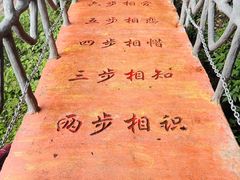 六步相会
五步相恋
四步相惜
三步相知
两步相识